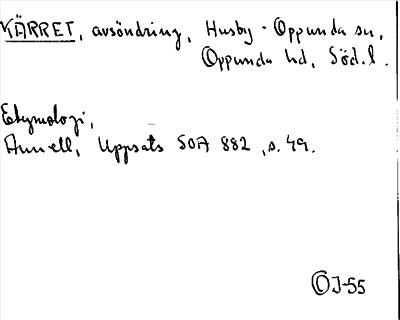 KÄRRET, avsöndring, Husby-Oppunda sn,
Oppunda hd, Söd.l.
Etymologi,
Annell, Uppsats SOA 882, s. 49.
ⒸJ-55